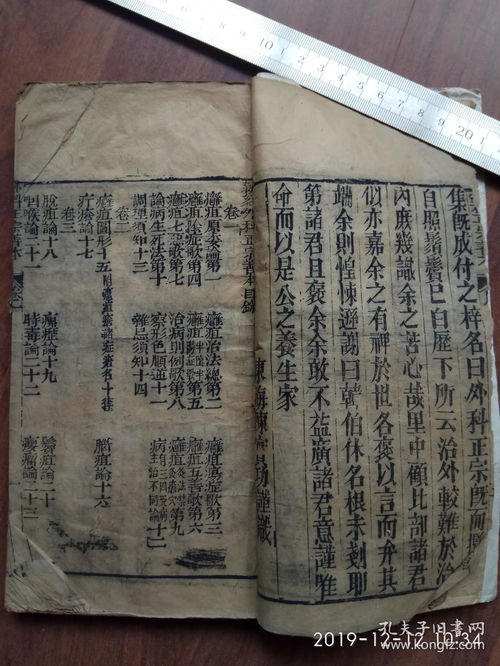 集既成付之梓名曰外科正宗既而
自照鬚鬢已白歷下所云治外較難於治
內庶幾識余之苦心哉里中顧比部諸君
似亦嘉余之有裨於世各褒以言而弁其
端余則惶悚遜謝曰韓伯休名根未剗耶
第諸君且褒余余敢不益廣諸君意謹唯
命而以是公之養生家
東海陳實功謹識
外科正宗書本目錄
卷一
癰疽原委論第一
癰疽治法總二
癰疽陽症歌第三
癰疽陰症歌第四
癰疽半陰半陽歌第五
癰疽五善歌第六
癰疽七惡歌第七
治病則例歌第八
癰疽
第九
論病生死法第十
察形色順逆十一
病有三因受病主治不同論十二
調理須知十三
雜忌須知十四
卷二
癰疽圖形十五
腦疽論十六
疔瘡論十七
卷三
脫疽論十八
瘰癧論十九
鬢疽論二十
咽喉論二十一
時毒論二十二
瘻瘤論二十三
2019-12-12 10:34
孔夫子旧书网
www.kongfz.com
10
20